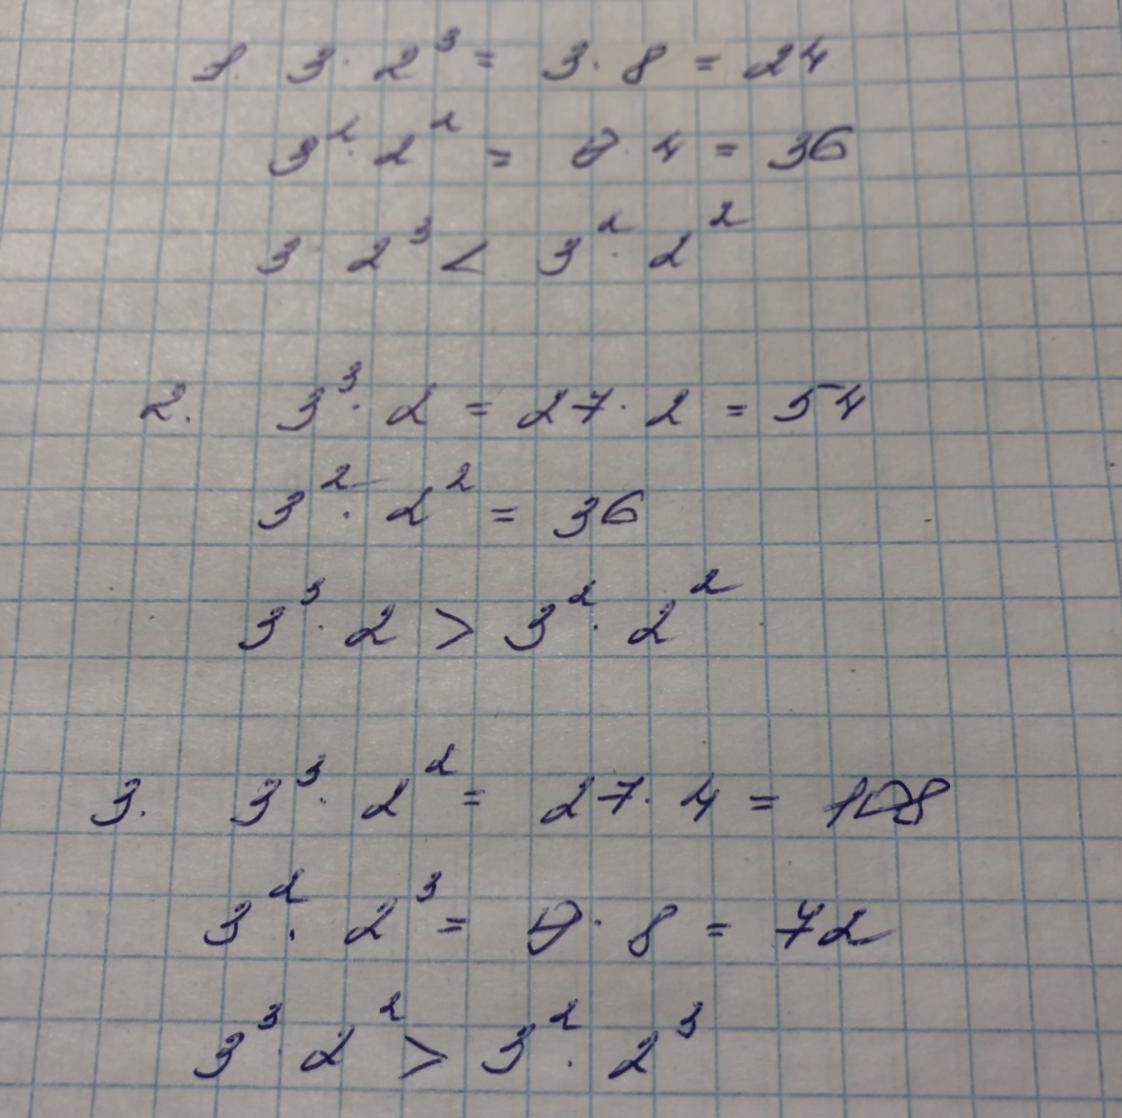 1. 3 · 2³ = 3 · 8 = 24
3² · 2² = 9 · 4 = 36
3 · 2³ < 3² · 2²
2. 3³ · 2 = 27 · 2 = 54
3² · 2² = 36
3³ · 2 > 3² · 2²
3. 3³ · 2² = 27 · 4 = 108
3² · 2³ = 9 · 8 = 72
3³ · 2² > 3² · 2³